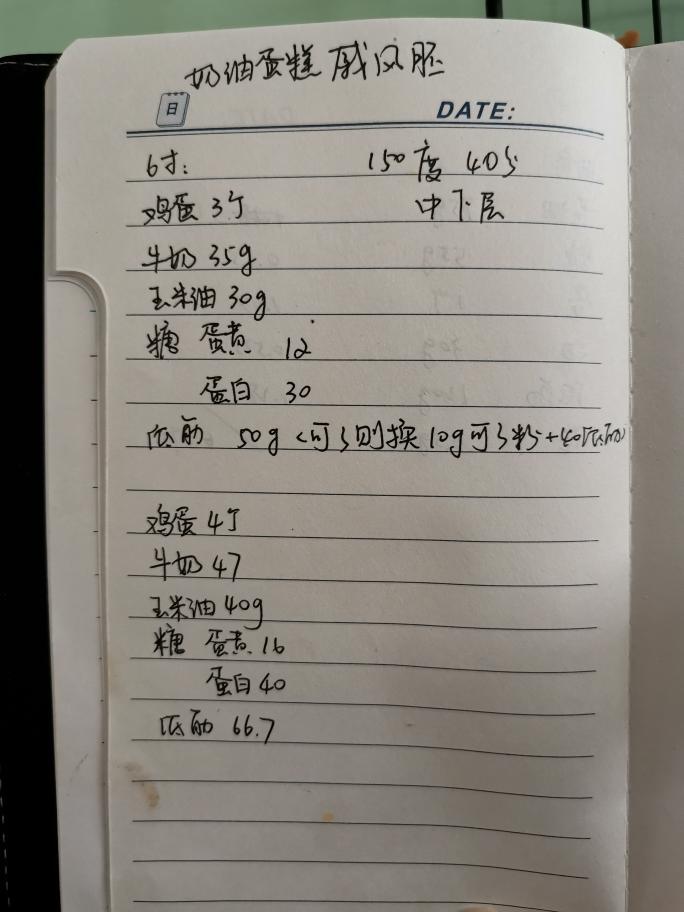 奶油蛋糕 戚风胚
日
DATE:
6寸: 150度 40分
鸡蛋 3个 中下层
牛奶 35g
玉米油 30g
糖 蛋黄 12
蛋白 30
低筋 50g <可可则换 10g可可粉+40低筋)
鸡蛋 4个
牛奶 47
玉米油 40g
糖 蛋黄 16
蛋白 40
低筋 66.7